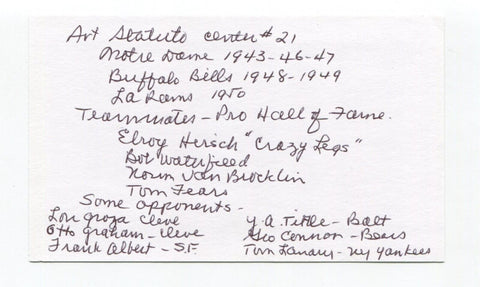 Art Statuto center # 21
Notre Dame 1943-46-47
Buffalo Bills 1948-1949
La Rams 1950
Teammates - Pro Hall of Fame.
Elroy Hirsch "Crazy Legs"
Bob Waterfield
Norm Van Brocklin
Tom Fears
Some opponents -
Lou Groza Cleve
Otto Graham - Cleve
Frank Albert - S.F.
Y.A. Tittle - Balt
Geo Connor - Bears
Tom Landry - NY Yankees